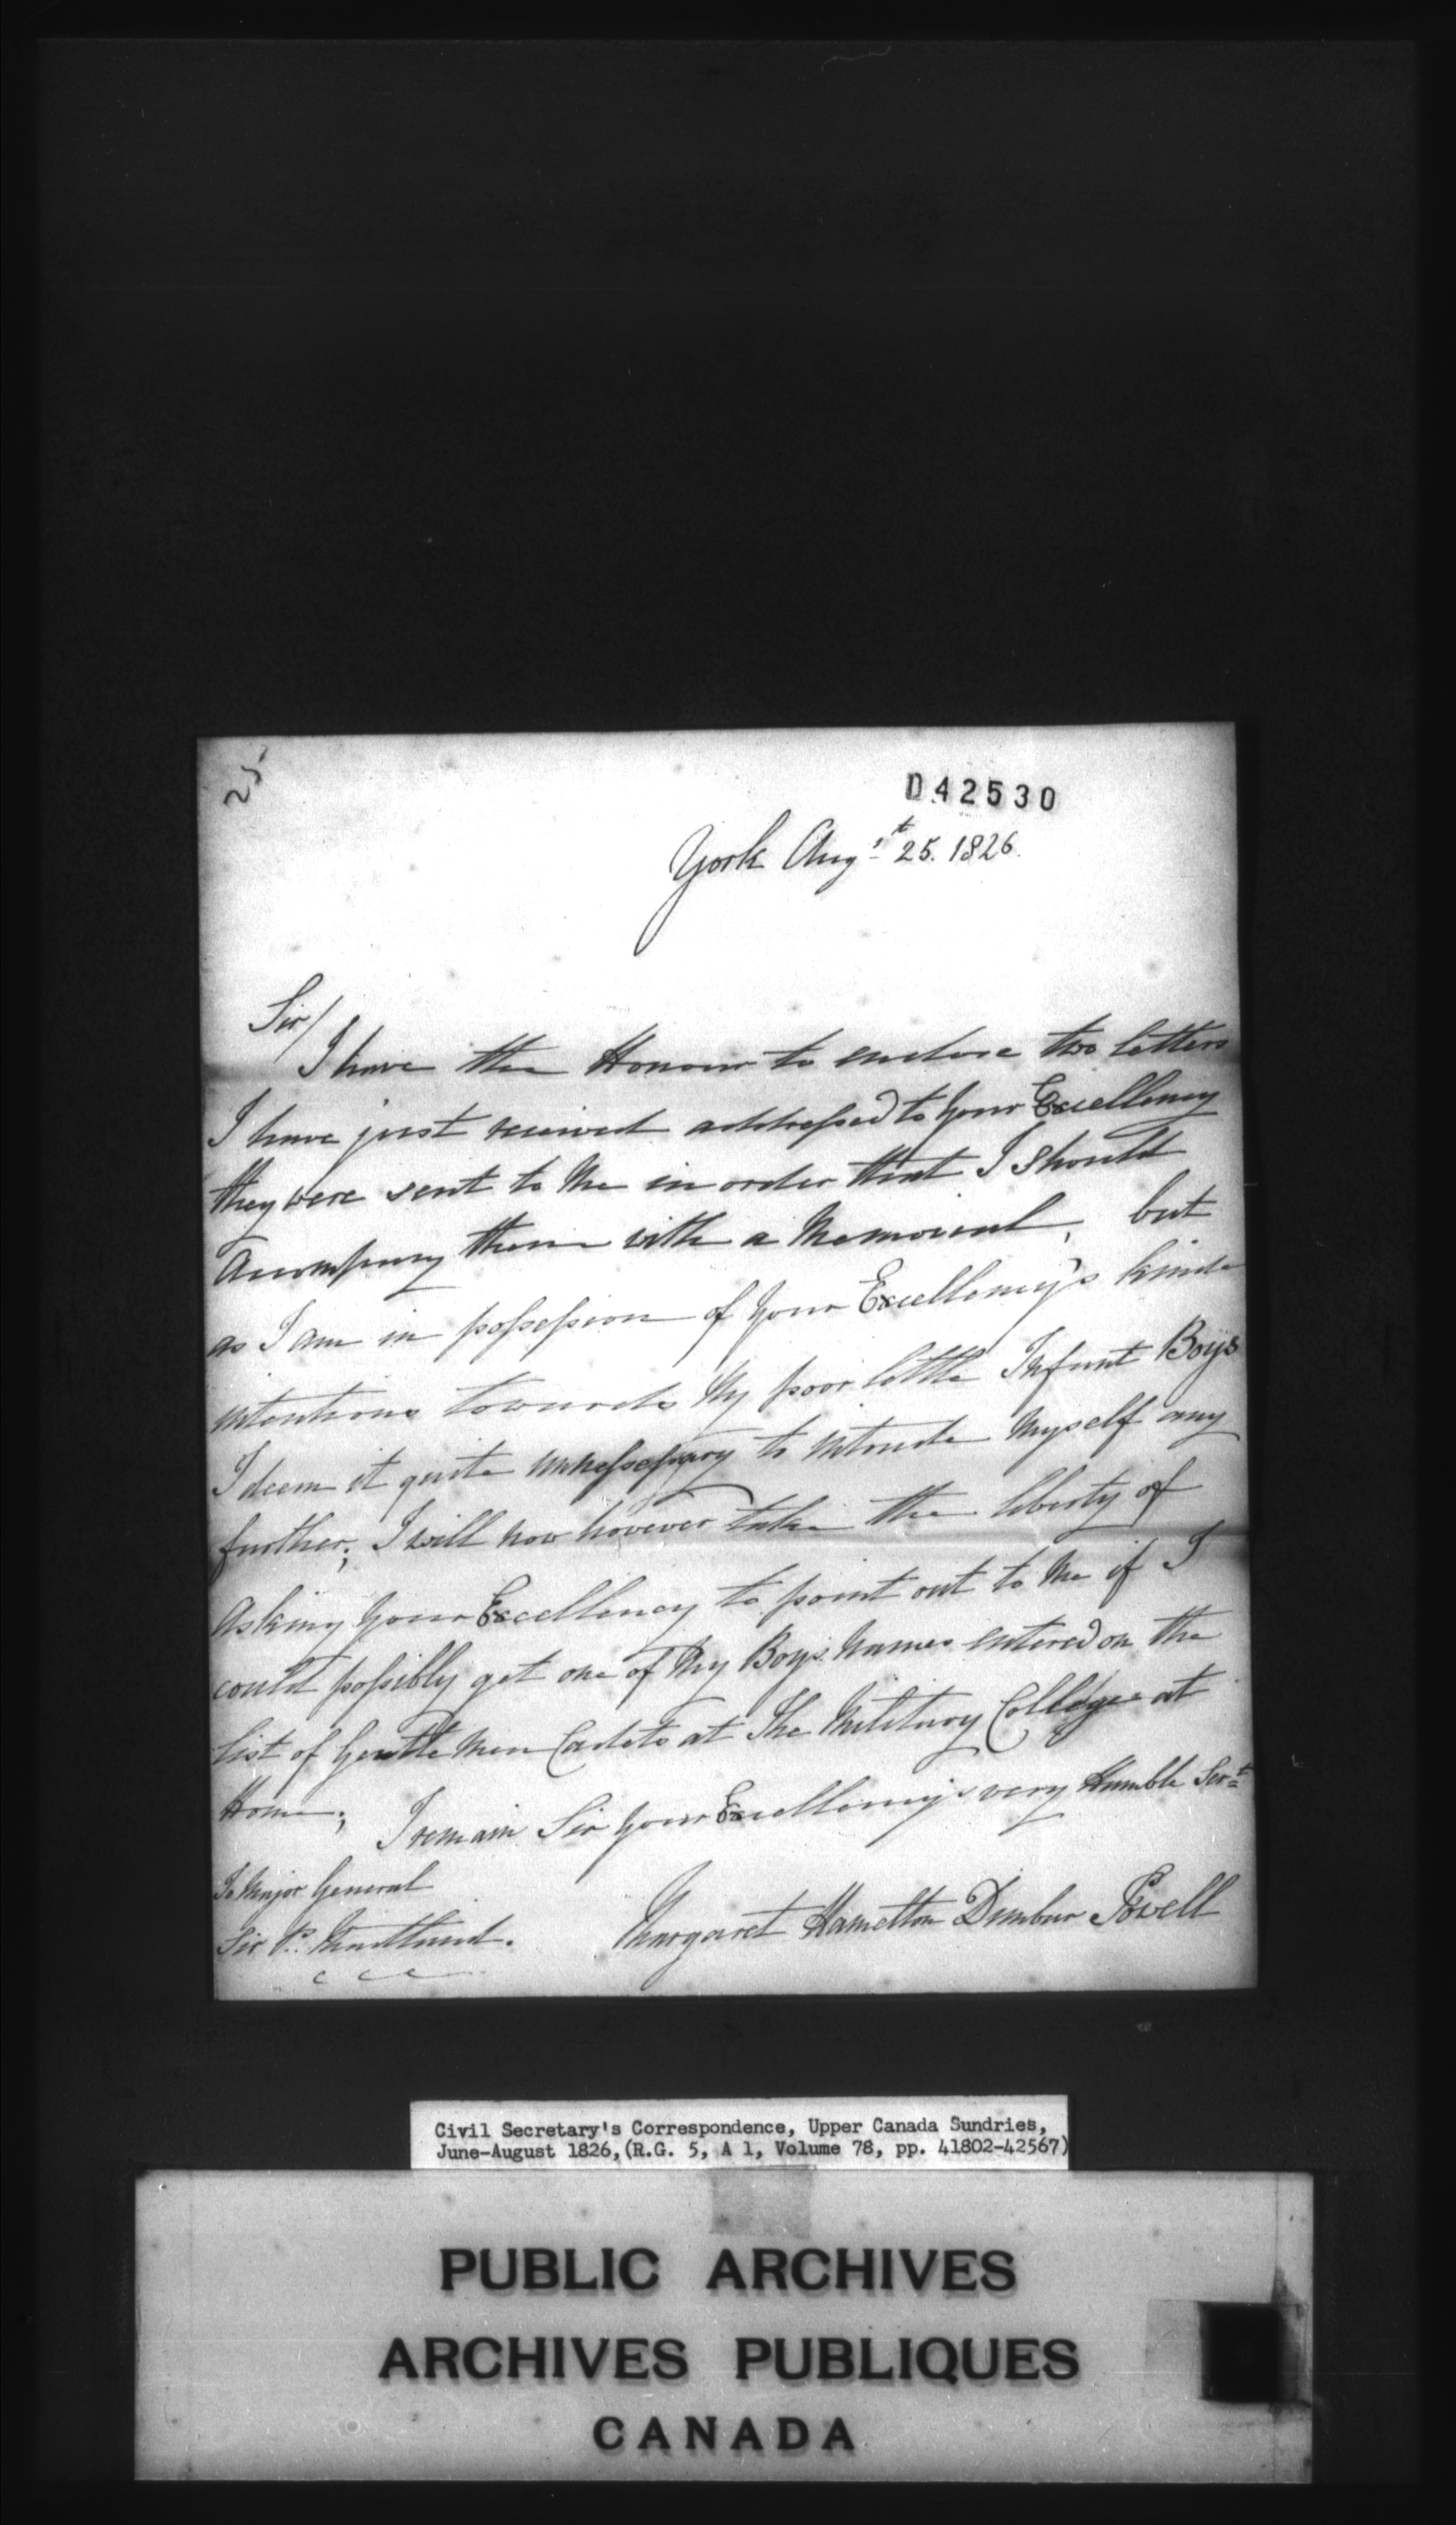 25
D42530
York Augst 25. 1826.
Sir/
I have the Honour to enclose two letters
I have just received addressed to your Excellency
they were sent to Me in order that I should
Accompany them with a Memorial, but
as I am in possession of your Excellency's kind
intentions towards My poor little Infant Boys
I deem it quite unnessessary to intrude Myself any
further; I will now however take the liberty of
Asking your Excellency to point out to Me if I
could possibly get one of My Boys Names entered on the
list of Gentlemen Cadets at The Military College at
Home; I remain Sir your Excellency's very Humble Sert
To Major General
Sir P. Maitland. Margaret Hamelton Dunbar Powell
Civil Secretary's Correspondence, Upper Canada Sundries,
June-August 1826, (R.G. 5, A 1, Volume 78, pp. 41802-42567)
PUBLIC ARCHIVES
ARCHIVES PUBLIQUES
CANADA